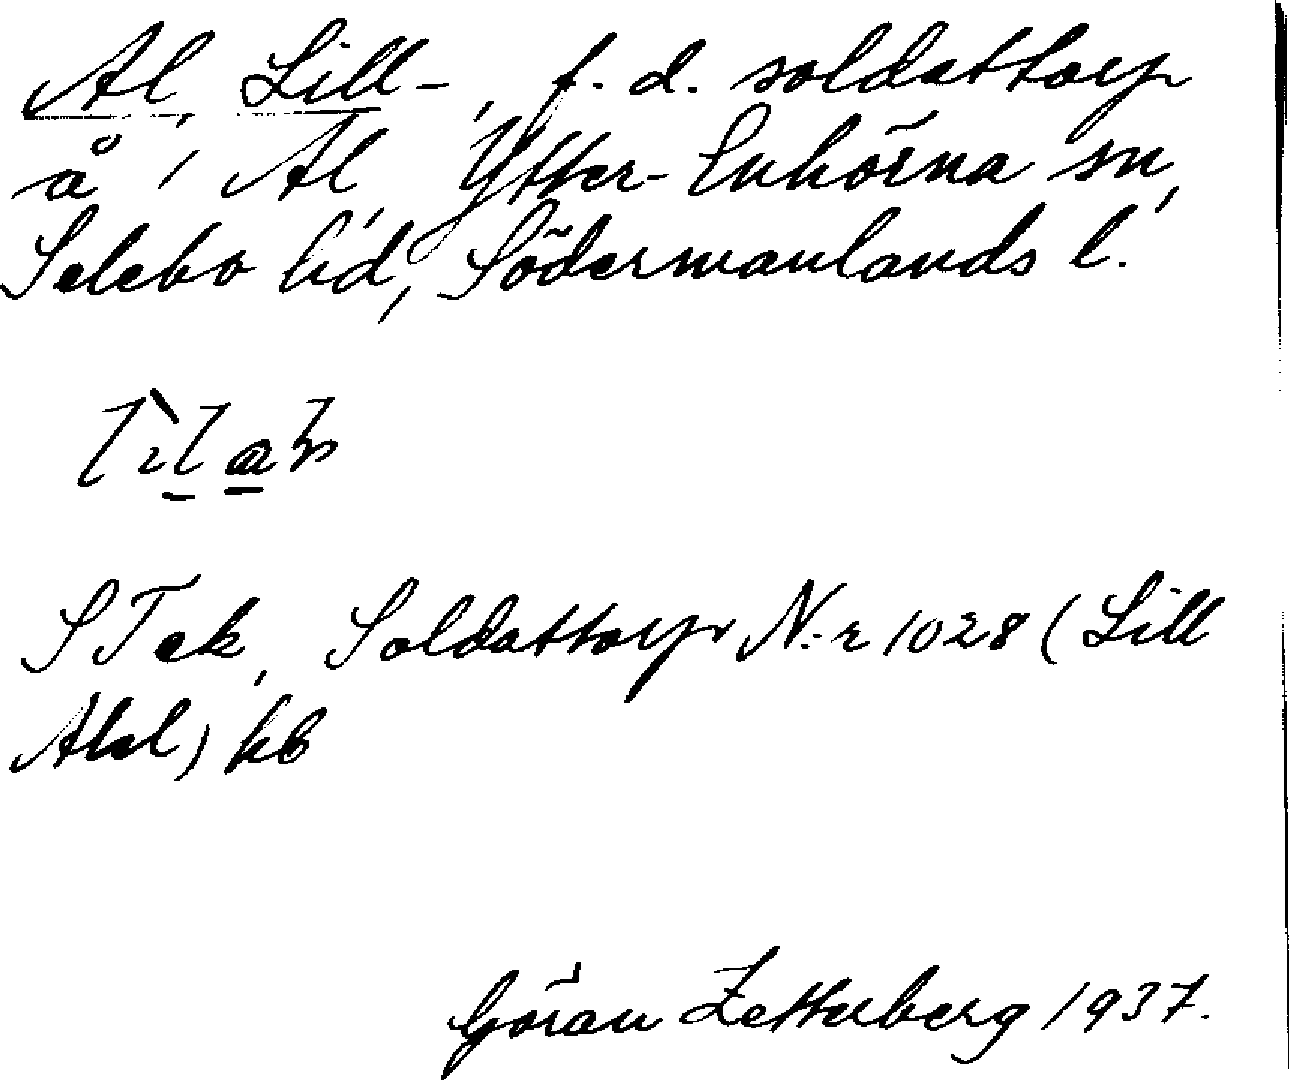 Al, Lill-, f. d. soldattorp
å 1 Al, Ytter-Enhörna sn,
Selebo hd, Södermanlands l.
STek, Soldattorp N:r 1028 (Lill
Ahl) kb
Göran Zetterberg 1937.